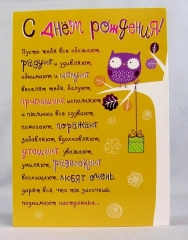 С днём рождения!
Пусть тебя все обожают,
радуют и удивляют,
обнимают и целуют
веселят тебя, балуют,
приглашают исполняют
и пылинки все сдувают,
помогают, поражают
забавляют, вдохновляют
угощают уважают
умиляют, развлекают
восхищают, любят очень,
дарят всё, что ты захочешь,
поднимают настроенье...